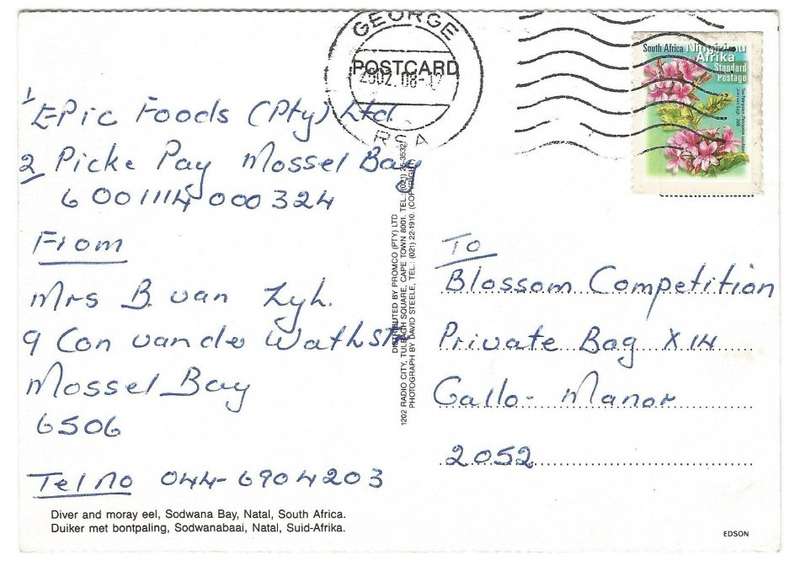 GEORGE
POSTCARD
RSA
South Africa
Afrika
Standard
Postage
1 Epic Foods (Pty) Ltd.
2 Picke Pay Mossel Bay
6 001114 000324
From
Mrs B. van Zyl.
9 Con van de
Mossel Bay
6506
Tel no 044-6904203
DISTRIBUTED BY PROMCO (PTY) LTD
1202 RADIO CITY, TULBAGH SQUARE, CAPE TOWN 8001. TEL.: (021) 25-3532
PHOTOGRAPH BY DAVID STEELE, TEL.: (021) 22-1910. (COPYRIGHT)
To
Blossom Competition
Private Bag X14
Gallo-Manor
2052
Diver and moray eel, Sodwana Bay, Natal, South Africa.
Duiker met bontpaling, Sodwanabaai, Natal, Suid-Afrika.
EDSON